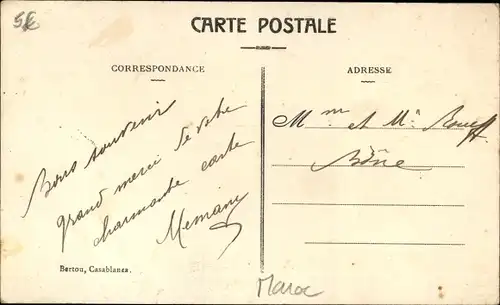 5€
CARTE POSTALE
CORRESPONDANCE
ADRESSE
Bons souvenirs
grand merci de votre
charmante carte
Mm et Mr
Bône
Bertou, Casablanca.
Maroc